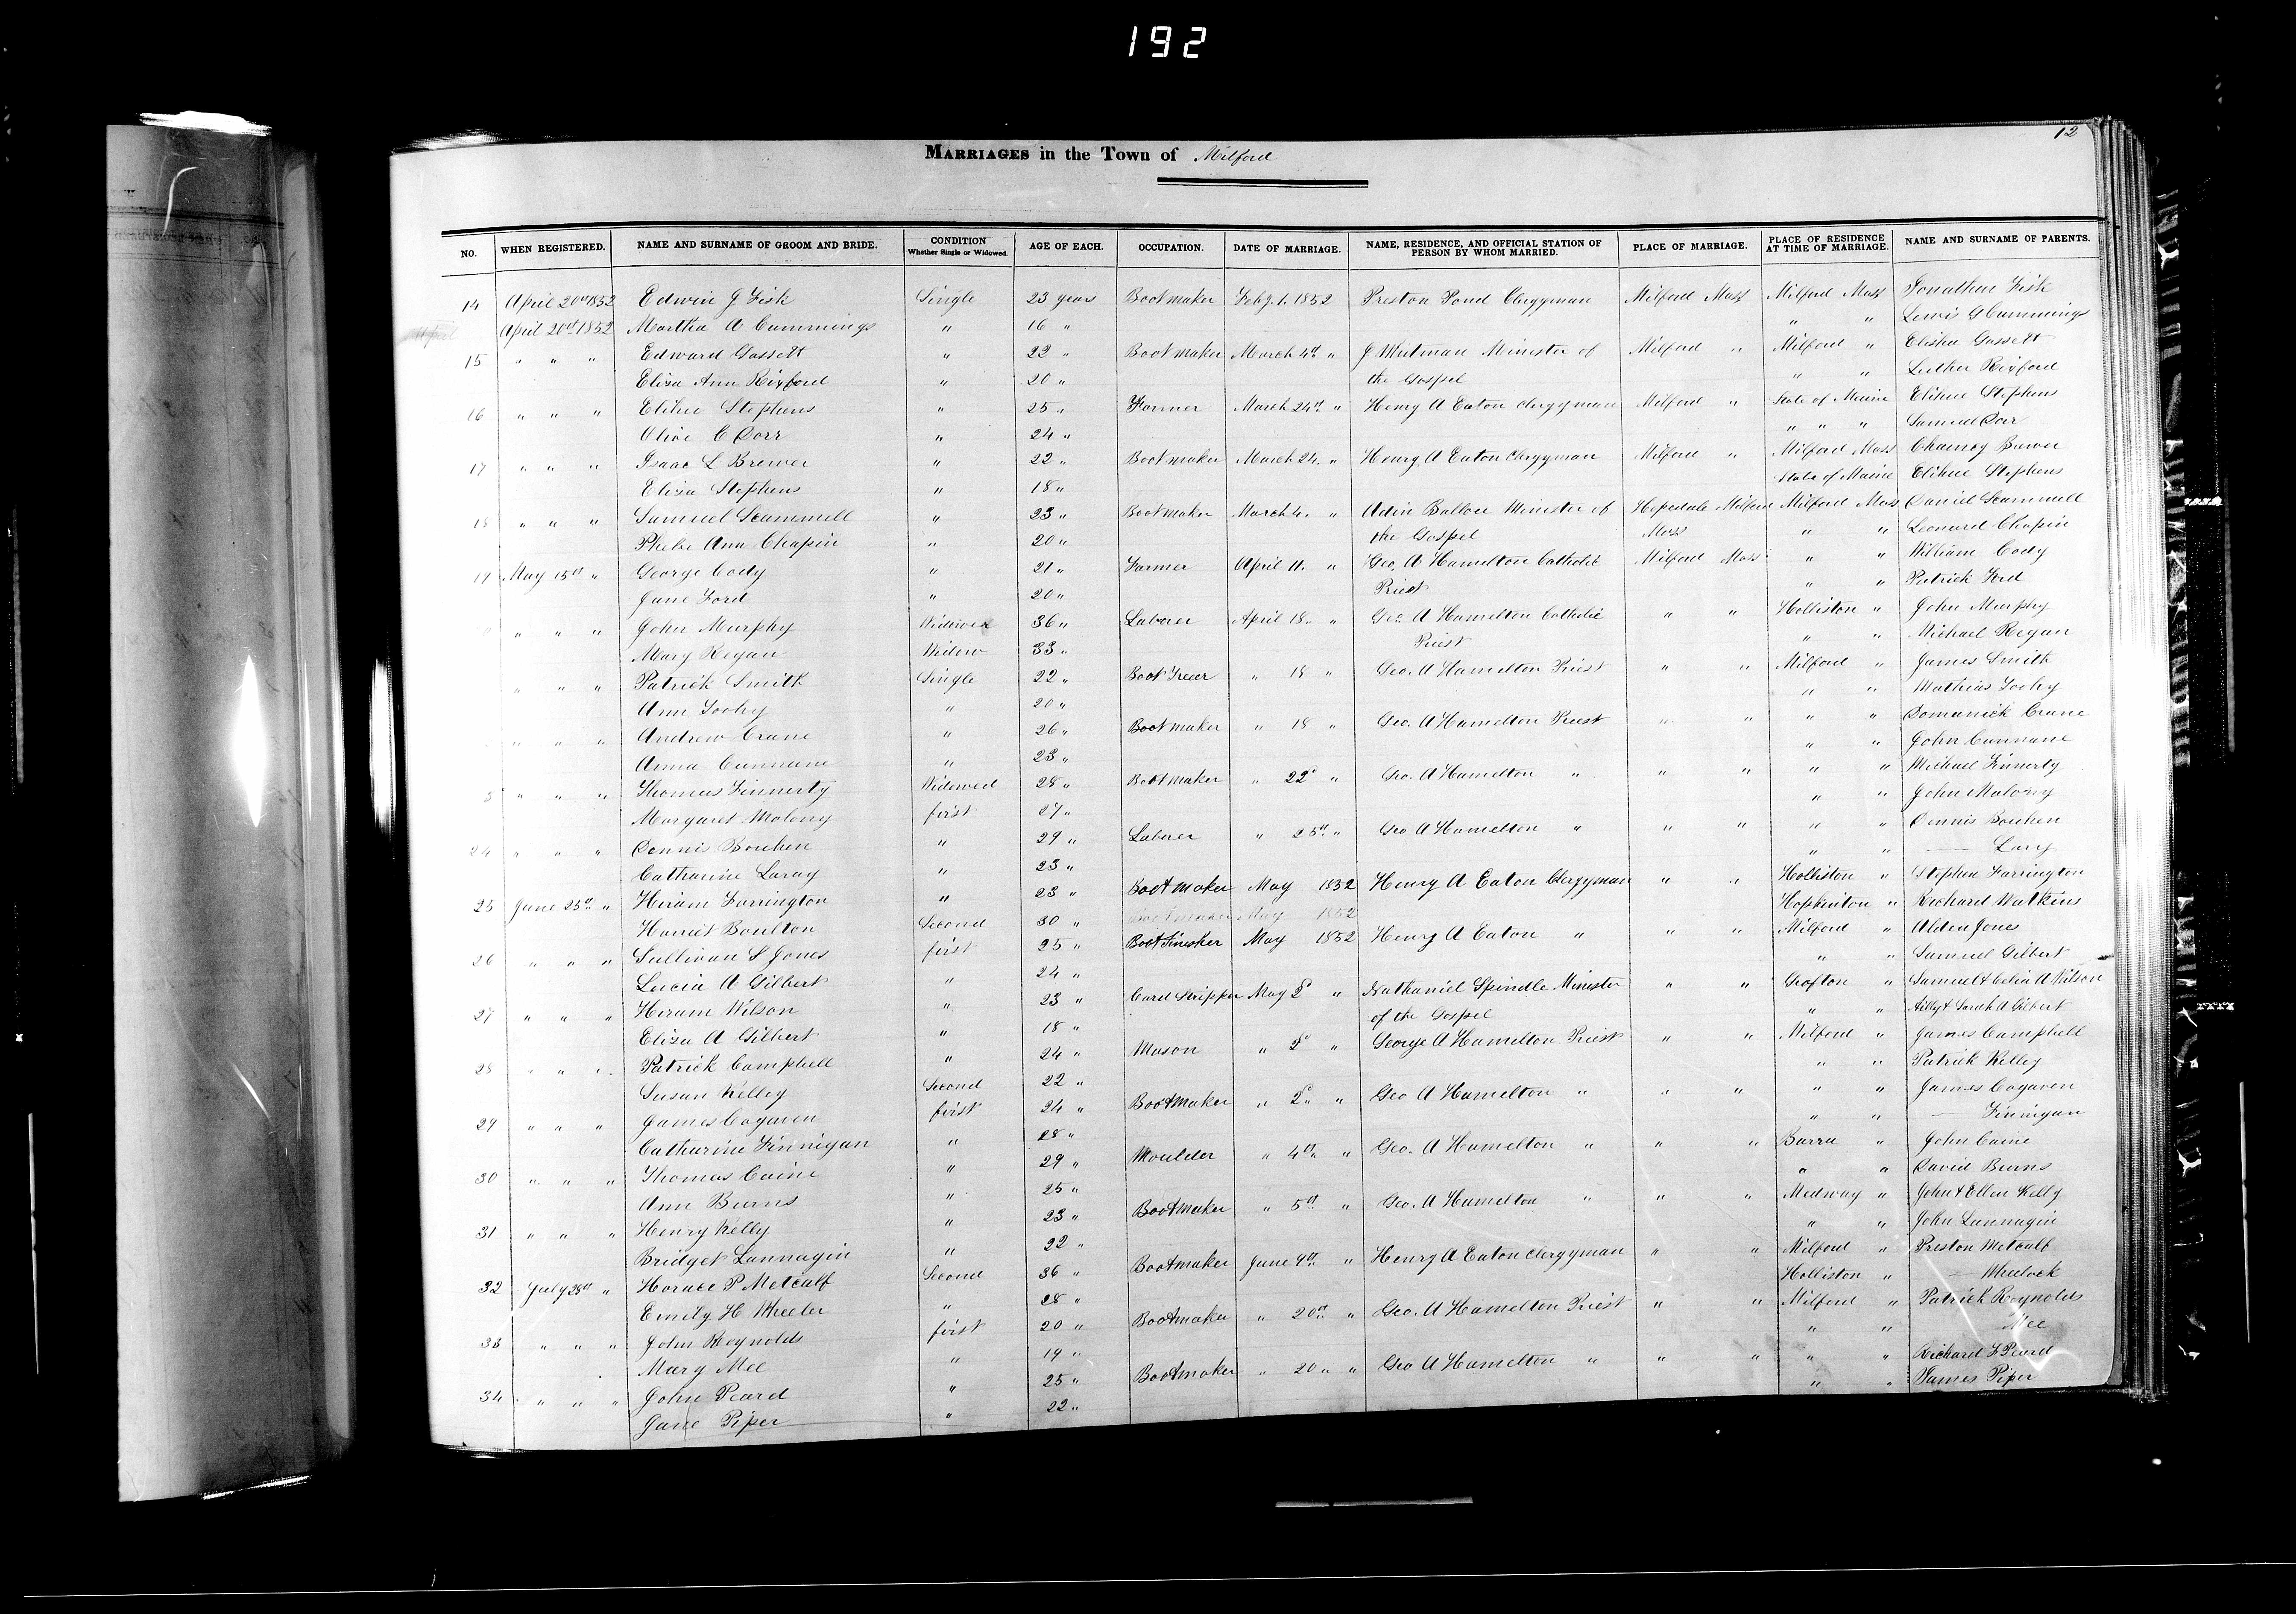 192
12
MARRIAGES in the Town of Milford
NO. WHEN REGISTERED. NAME AND SURNAME OF GROOM AND BRIDE. CONDITION Whether Single or Widowed. AGE OF EACH. OCCUPATION. DATE OF MARRIAGE. NAME, RESIDENCE, AND OFFICIAL STATION OF PERSON BY WHOM MARRIED. PLACE OF MARRIAGE. PLACE OF RESIDENCE AT TIME OF MARRIAGE. NAME AND SURNAME OF PARENTS.
14 April 20th 1852 Edwin J Fisk Single 23 years Bootmaker Feby. 1. 1852 Preston Pond Clergyman Milford Mass Milford Mass Jonathan Fisk
April 20th 1852 Martha A Cummings " 16 " " " Lewis G Cummings
15 " " " Edward Gassett " 22 " Bootmaker March 4th " J Mutman Minister of Milford " Milford " Elisha Gassett
Eliza Ann Rixford " 20 " the Gospel " " Luther Rixford
16 " " " Elihue Stephens " 25 " Farmer March 24th " Henry A Eaton Clergyman Milford " State of Maine Elihue Stephens
Olive C Dorr " 24 " " " " Samuel Dorr
17 " " " Isaac L Brewer " 22 " Bootmaker March 24. " Henry A Eaton Clergyman Milford " Milford Mass Chauncy Brewer
Eliza Stephens " 18 " State of Maine Elihue Stephens
18 " " " Samuel Scammell " 23 " Bootmaker March 4. " Adin Ballou Minister of Hopedale Milford Milford Mass Daniel Scammell
Phebe Ann Chapin " 20 " the Gospel Mass " " Leonard Chapin
19 May 15th " George Cody " 21 " Farmer April 11. " Geo. A Hamelton Catholic Milford Mass " " William Cody
Jane Ford " 20 " Priest " " Patrick Ford
" " " John Murphy Widower 36 " Laborer April 18. " Geo. A Hamelton Catholic " " Holliston " John Murphy
Mary Regan Widow 33 " Priest " " Michael Regan
" " " Patrick Smith Single 22 " Boot Treer " 18 " Geo. A Hamelton Priest " " Milford " James Smith
Ann Toohy " 20 " " " Mathias Toohy
" " " Andrew Crane " 26 " Bootmaker " 18 " Geo. A Hamelton Priest " " " " Domanick Crane
Anna Cunnane " 23 " " " John Cunnane
3 " " " Thomas Finnerty Widowed 28 " Bootmaker " 22d " Geo. A Hamelton " " " " " Michael Finnerty
Margaret Malony first 27 " " " John Malony
24 " " " Dennis Bouhen " 29 " Laborer " 25th " Geo A Hamelton " " " " " Dennis Bouhen
Catharine Laray " 23 " " " Lary
25 June 25th " Hiram Farrington " 23 " Bootmaker May 1852 Henry A Eaton Clergyman " " Holliston " Stephen Farrington
Harriet Boulton Second 30 " Bootmaker May 1852 Hopkinton " Richard Watkins
26 " " " Sullivan S Jones first 25 " Boot Finisher May 1852 Henry A Eaton " " " Milford " Alden Jones
Lucia A Gilbert " 24 " " " Samuel Gilbert
27 " " " Hiram Wilson " 23 " Card Stripper May 2d " Nathaniel Spindle Minister " " Grafton " Samuel & Celia A Wilson
Eliza A Gilbert " 18 " of the Gospel " " & Sarah A Gilbert
28 " " " Patrick Campbell " 24 " Mason " 2d " George A Hamelton Priest " " Milford " James Campbell
Susan Kelley Second 22 " " " Patrick Kelley
29 " " " James Cogaven first 24 " Bootmaker " 2 " " Geo A Hamelton " " " " " James Cogaven
Catharine Finnigan " 28 " " " Finnigan
30 " " " Thomas Caine " 29 " Moulder " 4th " Geo. A Hamelton " " " Barra " John Caine
Ann Burns " 25 " " " David Burns
31 " " " Henry Kelly " 23 " Bootmaker " 5th " Geo. A Hamelton " " " Medway " John & Ellen Kelly
Bridget Lannagin " 22 " " " John Lannagin
32 July 28th " Horace P Metcalf Second 36 " Bootmaker June 9th " Henry A Eaton Clergyman " " Milford " Preston Metcalf
Emily H Wheeler " 28 " Holliston " Wheelock
33 " " " John Reynolds first 20 " Bootmaker " 20th " Geo. A Hamelton Priest " " Milford " Patrick Reynolds
Mary Mee " 19 " " " Mee
34 " " " John Peard " 25 " Bootmaker " 20 " " Geo A Hamelton " " " " " Richard L Peard
Jane Piper " 22 " " " James Piper